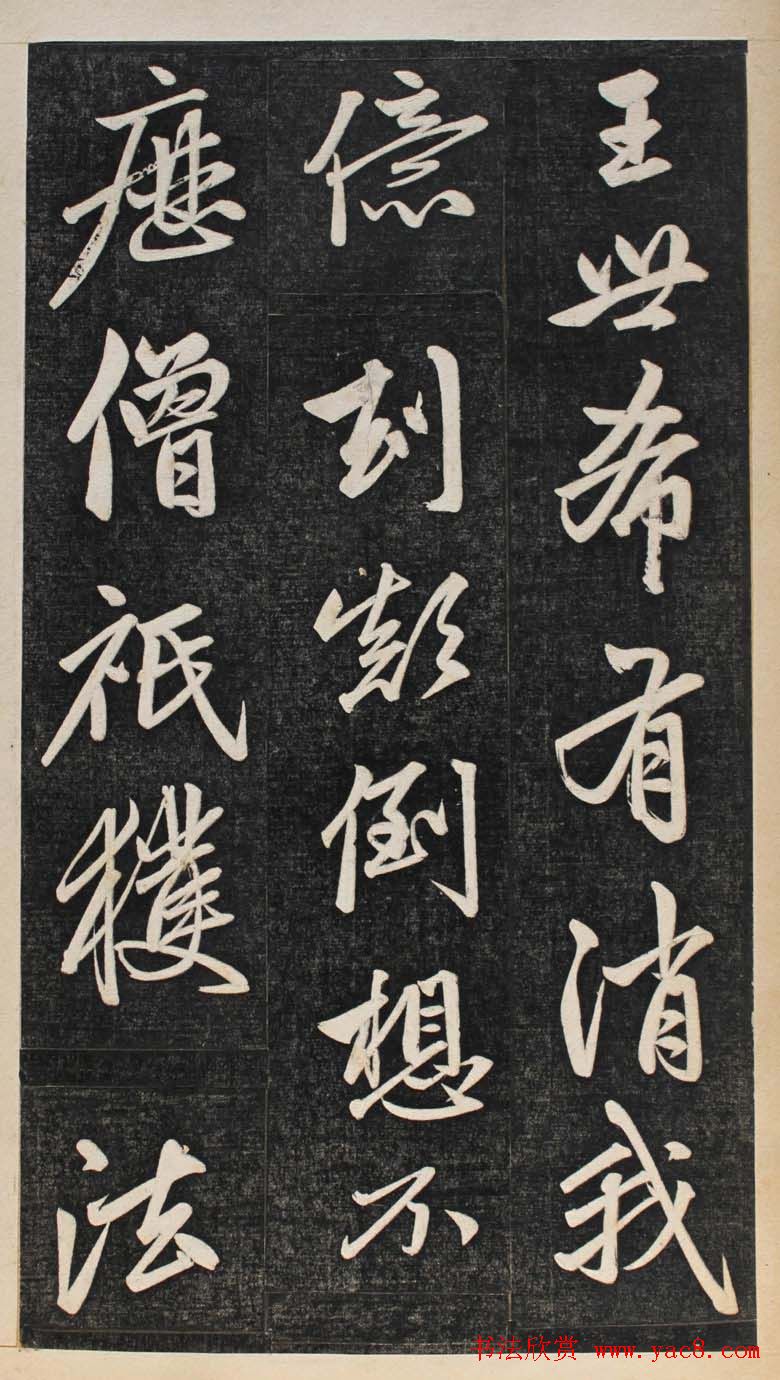 王世希有消我
億刧顛倒想不
歷僧祇穫法
书法欣赏 www.yac8.com